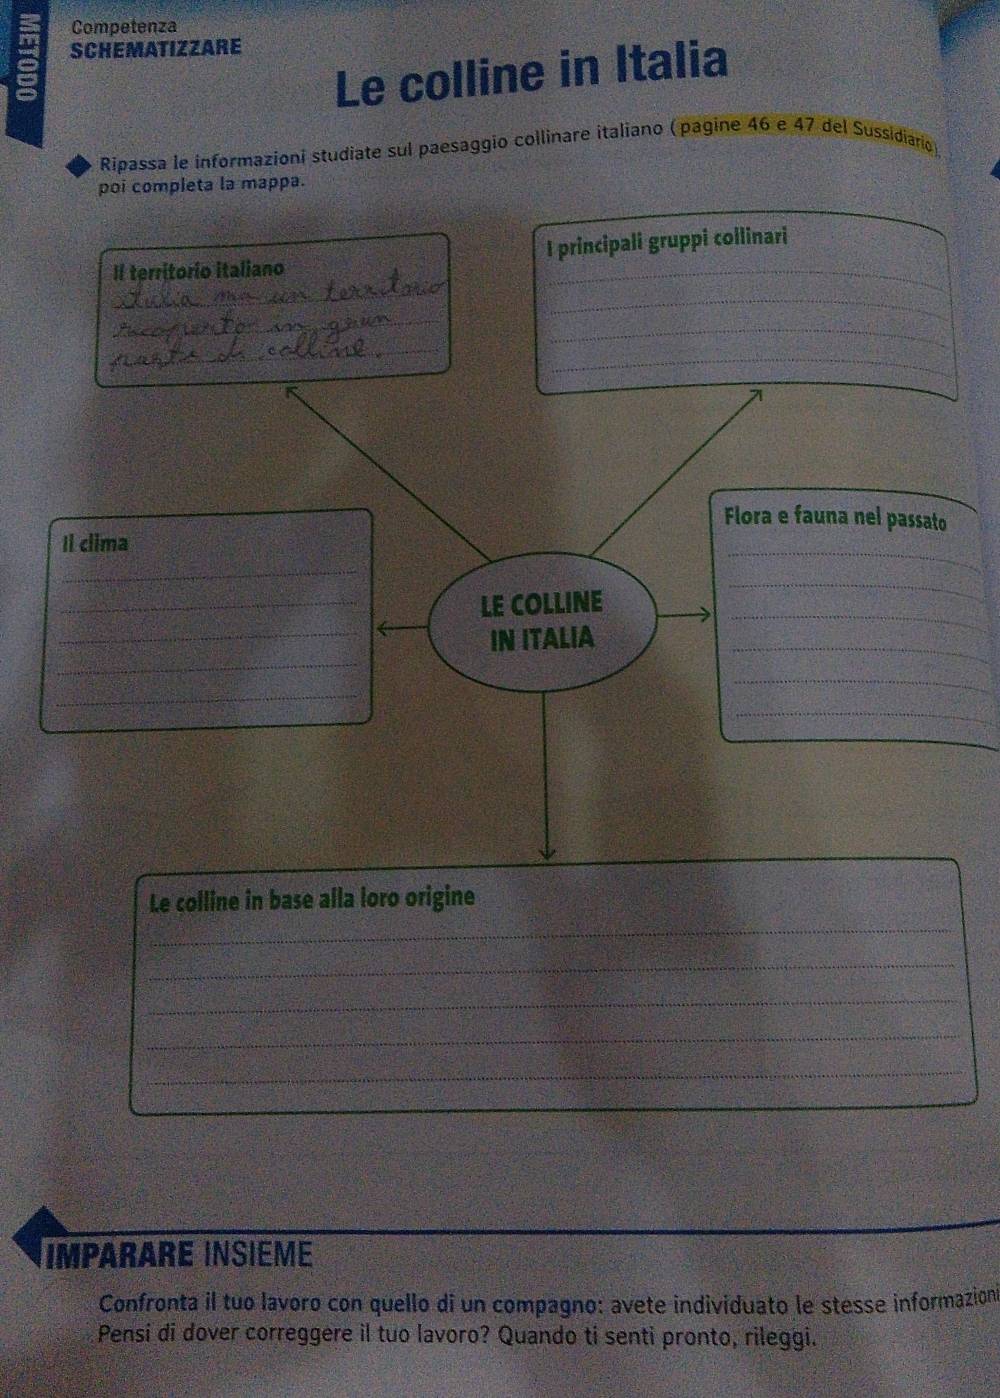 METODO
Competenza
SCHEMATIZZARE
Le colline in Italia
Ripassa le informazioni studiate sul paesaggio collinare italiano (pagine 46 e 47 del Sussidiario),
poi completa la mappa.
Il territorio italiano
ha un territorio
ricoperto in gran
parte di colline.
I principali gruppi collinari
Il clima
Flora e fauna nel passato
LE COLLINE
IN ITALIA
Le colline in base alla loro origine
IMPARARE INSIEME
Confronta il tuo lavoro con quello di un compagno: avete individuato le stesse informazioni
Pensi di dover correggere il tuo lavoro? Quando ti senti pronto, rileggi.